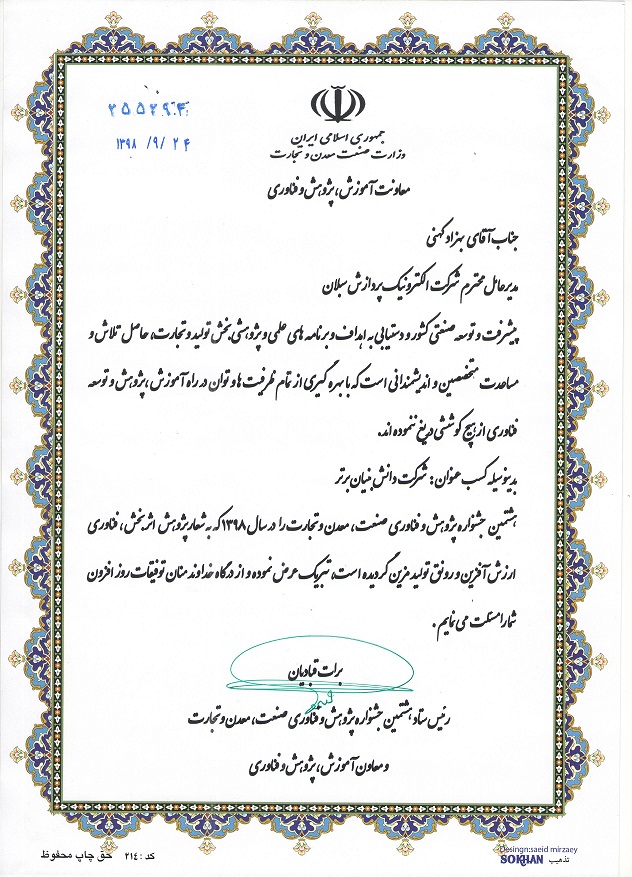 ۲۵۵۲۹۴
۱۳۹۸ /۹/ ۲۴
جمهوری اسلامی ایران
وزارت صنعت معدن و تجارت
معاونت آموزش، پژوهش و فناوری
جناب آقای بهزاد کهنی
مدیرعامل محترم شرکت الکترونیک پردازش سبلان
پیشرفت و توسعه صنعتی کشور و دستیابی به اهداف و برنامه های علمی و پژوهشی بخش تولید و تجارت، حاصل تلاش و
مساعدت متخصصین و اندیشمندانی است که با بهره گیری از تمام ظرفیت ها و توان در راه آموزش، پژوهش و توسعه
فناوری از هیچ کوششی دریغ ننموده اند.
بدینوسیله کسب عنوان: شرکت دانش بنیان برتر
هشتمین جشنواره پژوهش و فناوری صنعت، معدن و تجارت را در سال ۱۳۹۸ که به شعار پژوهش اثربخش، فناوری
ارزش آفرین و رونق تولید مزین گردیده است، تبریک عرض نموده و از درگاه خداوند منان توفیقات روز افزون
شما را مسئلت می نمایم.
برات قبادیان
رئیس ستاد هشتمین جشنواره پژوهش و فناوری صنعت، معدن و تجارت
و معاون آموزش، پژوهش و فناوری
کد: ۲۱۴ حق چاپ محفوظ
Desingn:saeid mirzaey
SOKHAN تذهیب